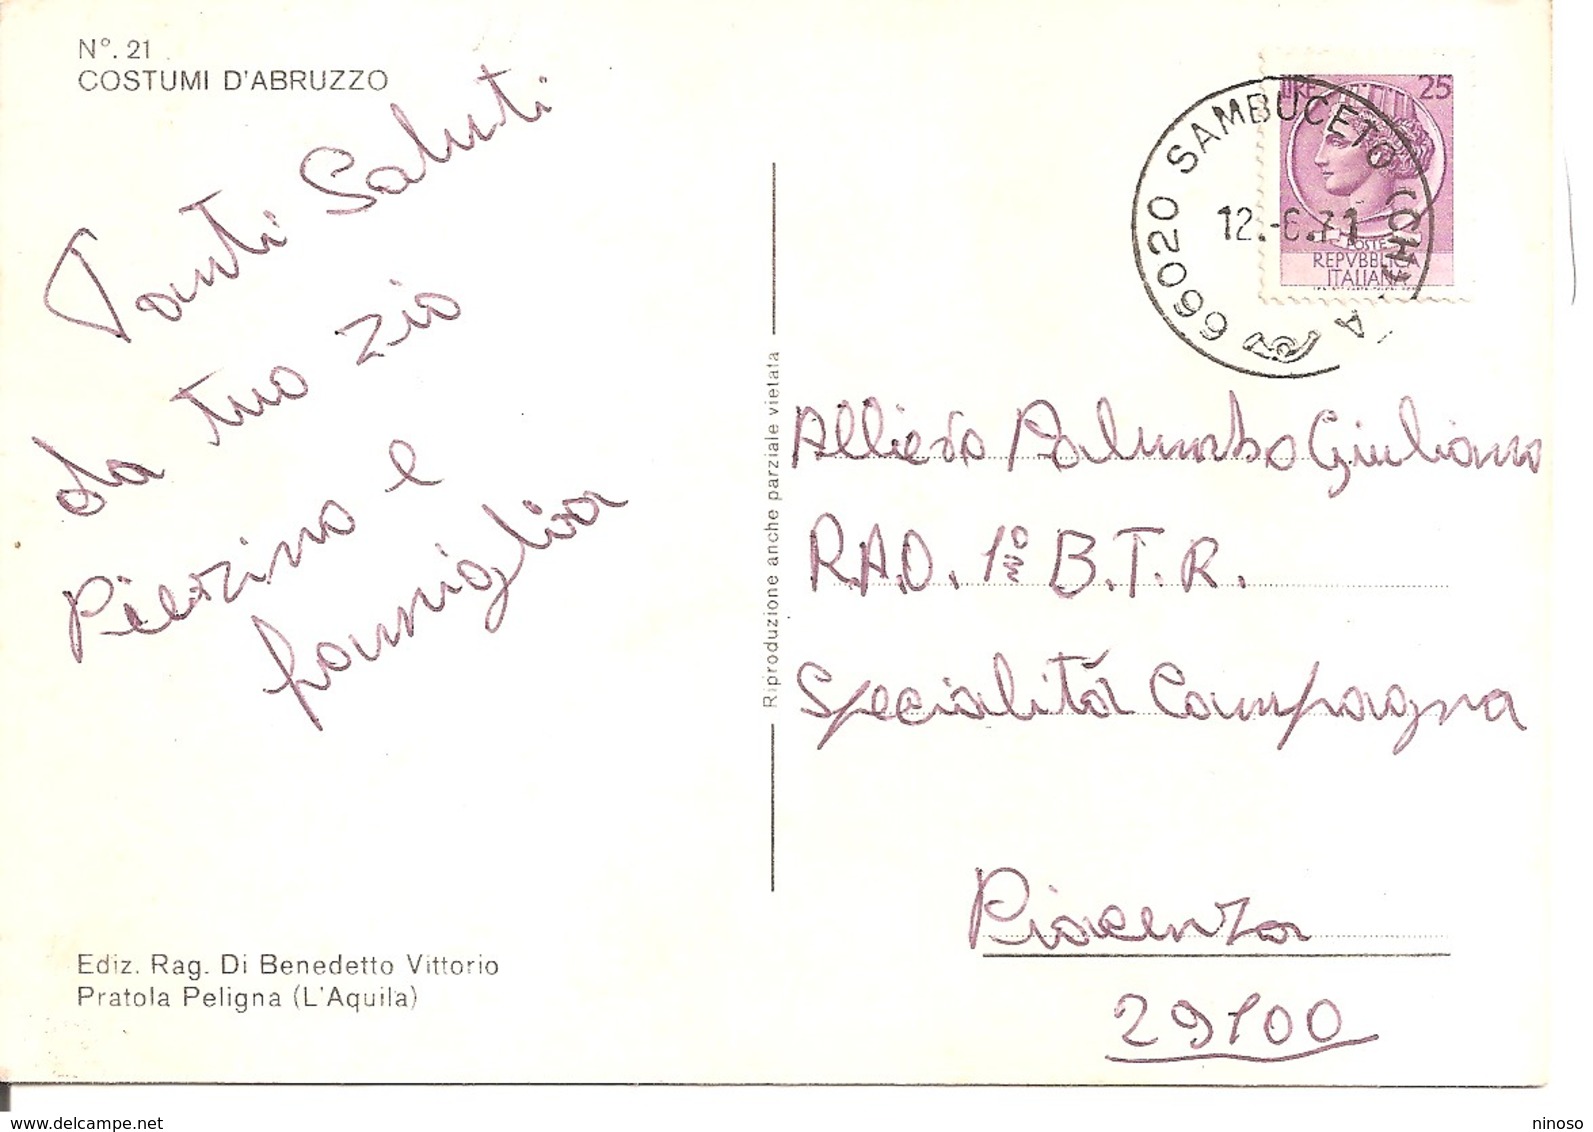 N°. 21
COSTUMI D'ABRUZZO
Tanti Saluti
da tuo zio
Pierino e
famiglia
Ediz. Rag. Di Benedetto Vittorio
Pratola Peligna (L'Aquila)
Riproduzione anche parziale vietata
66020 SAMBUCETO (CHIETI) A
12.-6.71
LIRE 25
POSTE
REPVBBLICA
ITALIANA
Allievo Palumbo Giuliano
R.A.O. 1º B.T.R.
Specialità Campagna
Piacenza
29100
www.delcampe.net
ninoso